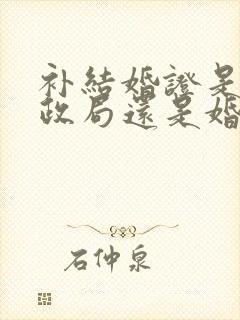 补結婚證是
政局還是婚
石仲泉